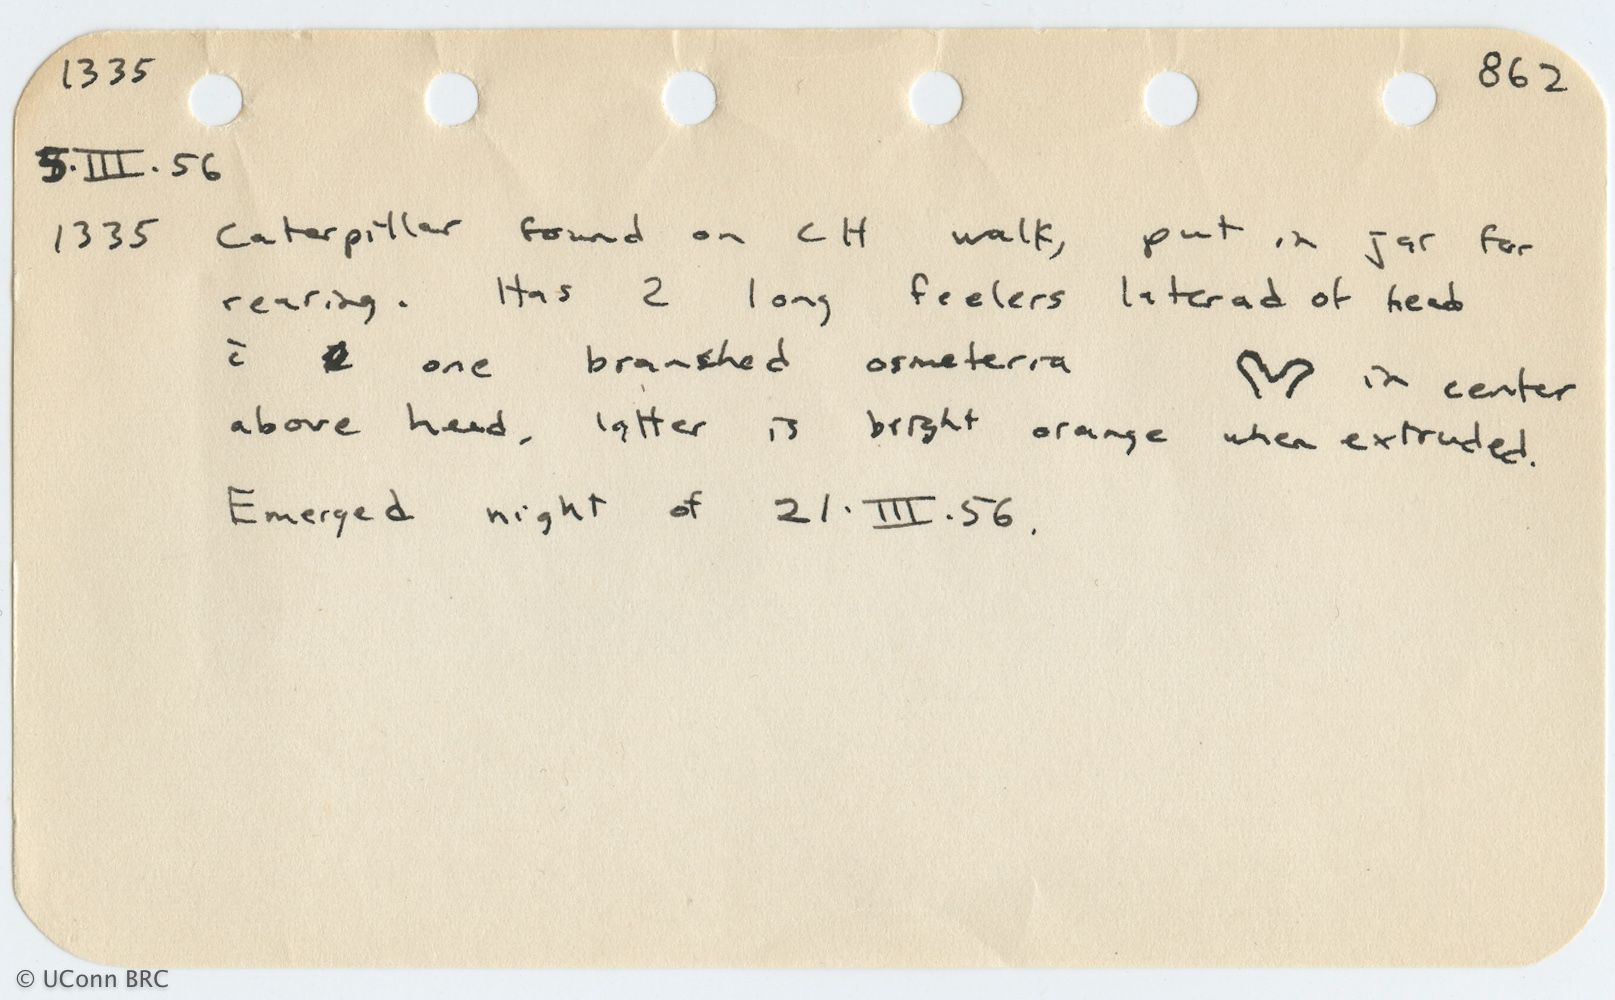 1335 862
5.III.56
1335 Caterpillar found on CH walk, put in jar for
rearing. Has 2 long feelers laterad of head
c̄ one branshed osmeterra in center
above head, latter is bright orange when extruded.
Emerged night of 21.III.56.
© UConn BRC